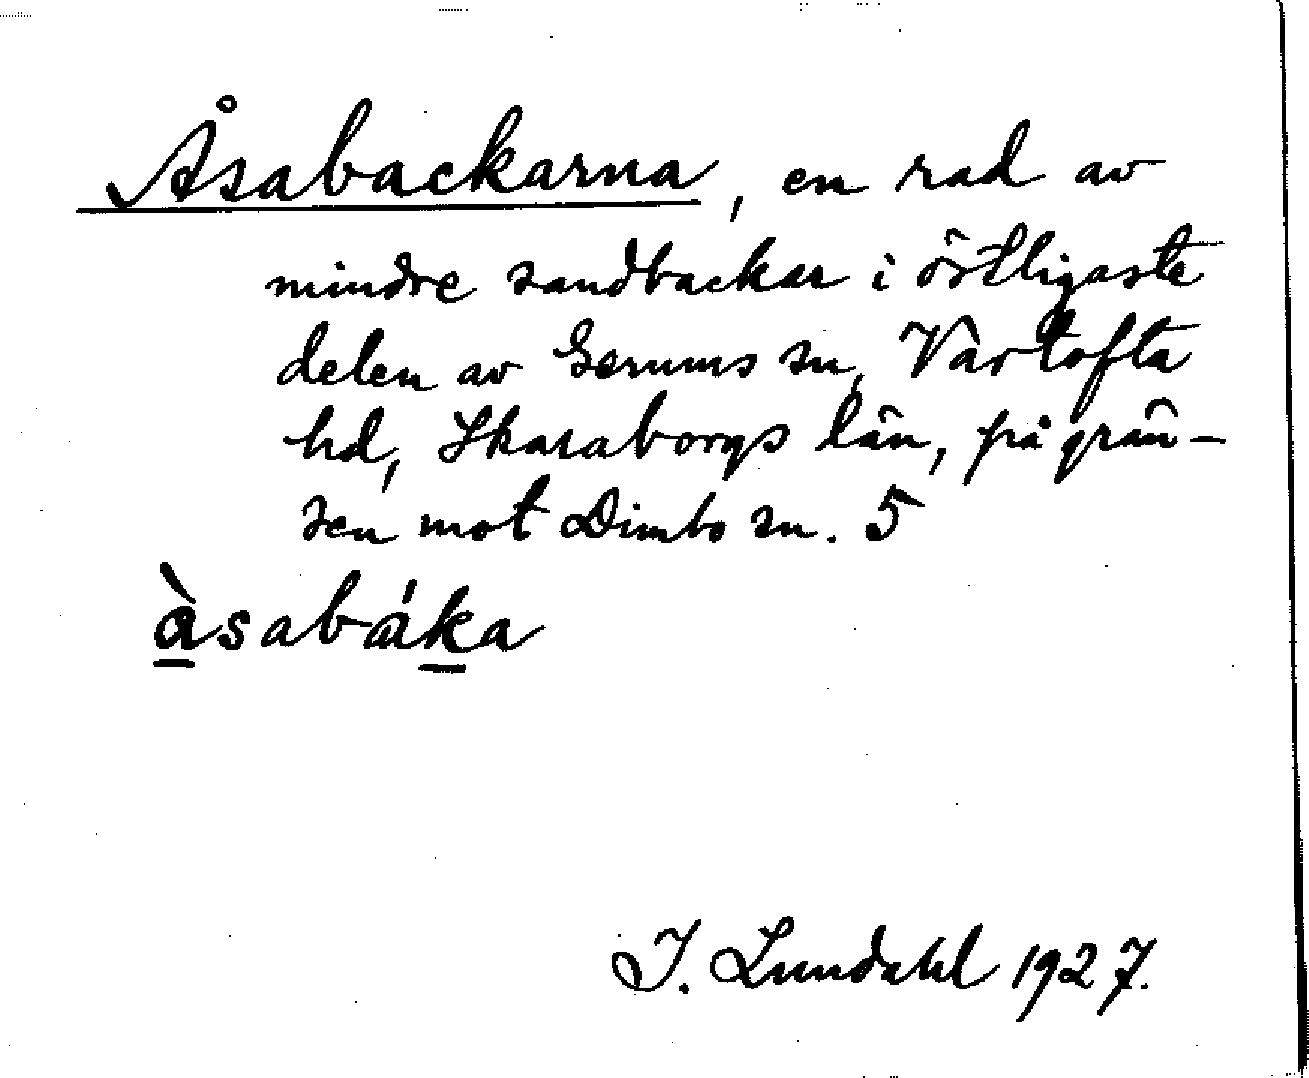 Åsabackarna, en rad av
mindre sandbackar i östligaste
delen av Gerums sn, Vartofta
hd, Skaraborgs län, på grän-
sen mot Dimbo sn. 5
àsabáka
I. Lundahl 1927.